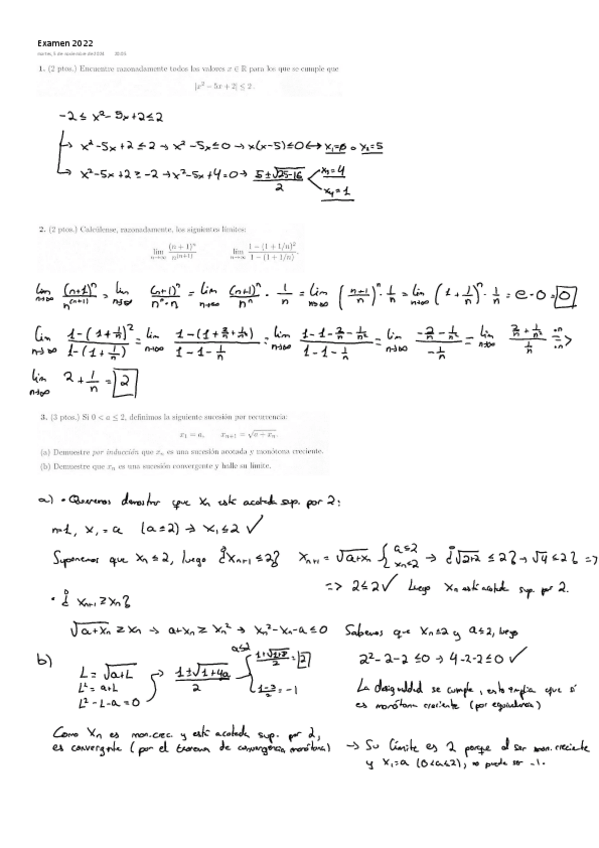 Examen 2022
1. (2 ptos.) Encuentre razonadamente todos los valores x ∈ ℝ para los que se cumple que
|x² − 5x + 2| ≤ 2.
-2 ≤ x² - 5x + 2 ≤ 2
x² - 5x + 2 ≤ 2 → x² - 5x ≤ 0 → x(x-5) ≤ 0 ↔ x₁=0 o x₂=5
x² - 5x + 2 ≥ -2 → x² - 5x + 4 = 0 → (5 ± √(25-16))/2 x₃=4 x₄=1
2. (2 ptos.) Calcúlense, razonadamente, los siguientes límites:
lim n→∞ (n+1)ⁿ / n^(n+1) lim n→∞ (1 − (1+1/n)²) / (1 − (1+1/n)).
lim n→∞ (n+1)ⁿ / n^(n+1) = lim n→∞ (n+1)ⁿ / (nⁿ · n) = lim n→∞ (n+1)ⁿ / nⁿ · 1/n = lim n→∞ ((n+1)/n)ⁿ · 1/n = lim n→∞ (1 + 1/n)ⁿ · 1/n = e · 0 = 0
lim n→∞ (1 - (1 + 1/n)²) / (1 - (1 + 1/n)) = lim n→∞ (1 - (1 + 2/n + 1/n²)) / (1 - 1 - 1/n) = lim n→∞ (1 - 1 - 2/n - 1/n²) / (1 - 1 - 1/n) = lim n→∞ (-2/n - 1/n²) / (-1/n) = lim n→∞ (2/n + 1/n²) / (1/n) ·n ·n =>
lim n→∞ 2 + 1/n = 2
3. (3 ptos.) Si 0 < a ≤ 2, definimos la siguiente sucesión por recurrencia:
x₁ = a, xₙ₊₁ = √(a + xₙ).
(a) Demuestre por inducción que xₙ es una sucesión acotada y monótona creciente.
(b) Demuestre que xₙ es una sucesión convergente y halle su límite.
a) • Queremos demostrar que xₙ está acotada sup. por 2:
n=1, x₁ = a (a≤2) → x₁ ≤ 2 ✓
Suponemos que xₙ ≤ 2, luego ¿xₙ₊₁ ≤ 2? xₙ₊₁ = √(a+xₙ) { a≤2 xₙ≤2 → ¿√(2+2) ≤ 2? → √4 ≤ 2? =>
=> 2 ≤ 2 ✓ luego xₙ está acotada sup. por 2.
• ¿xₙ₊₁ ≥ xₙ?
√(a+xₙ) ≥ xₙ → a+xₙ ≥ xₙ² → xₙ² - xₙ - a ≤ 0 Sabemos que xₙ≤2 y a≤2, luego
2² - 2 - 2 ≤ 0 → 4-2-2 ≤ 0 ✓
La desigualdad se cumple, esto implica que sí
es monótona creciente (por equivalencia)
b) L = √(a+L)
L² = a+L
L² - L - a = 0
→ (1 ± √(1+4a))/2 a≤2 = 2
= -1
Como xₙ es mon. crec. y está acotada sup. por 2,
es convergente (por el teorema de convergencia monótona)
→ Su límite es 2 porque al ser mon. creciente
y x₁=a (0<a≤2), no puede ser -1.